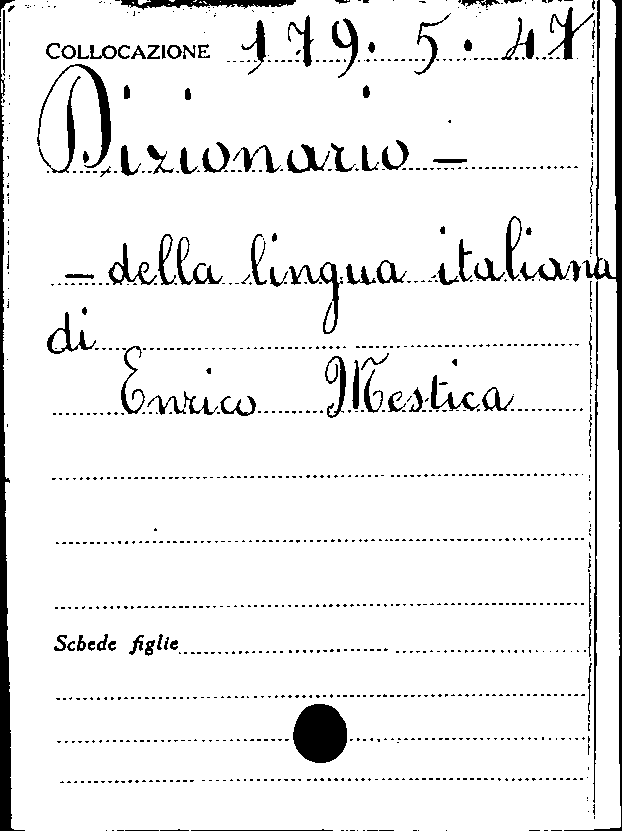 COLLOCAZIONE 179. 5. 47
Dizionario –
– della lingua italiana
di
Enrico Mestica
Schede figlie